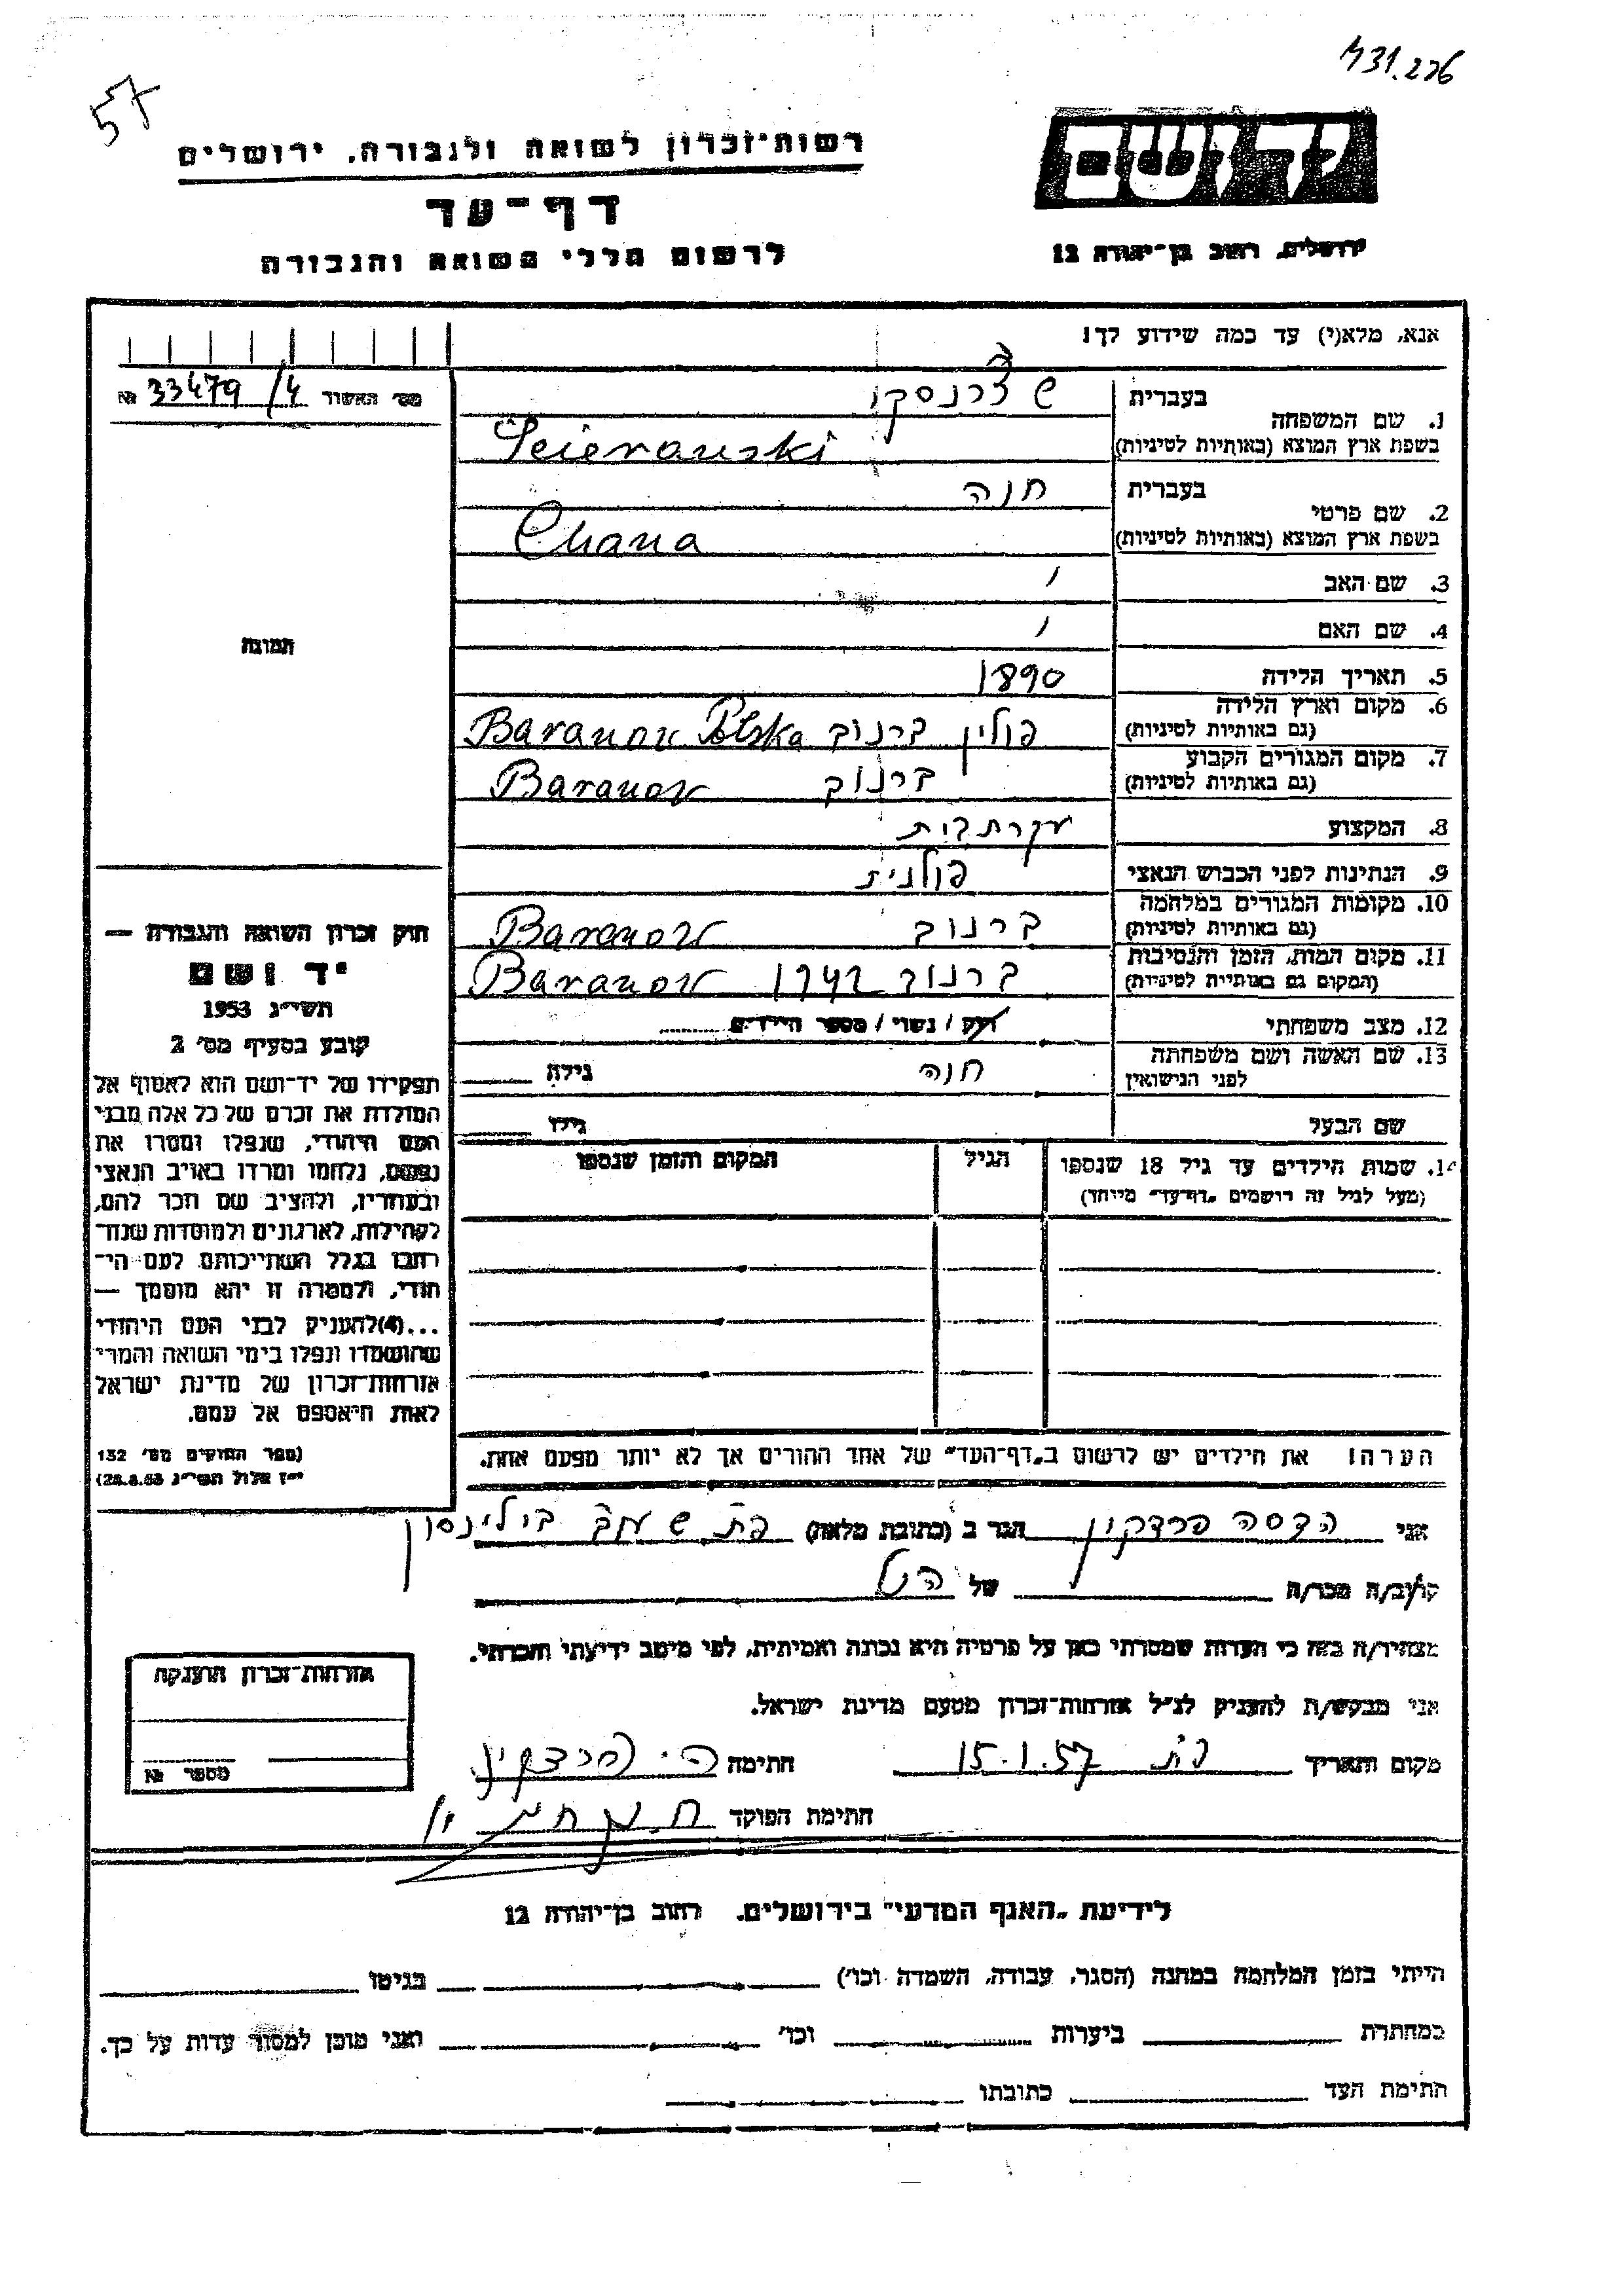 431.226
57
יד ושם
רשות־זכרון לשואה ולגבורה, ירושלים
דף־עד
לרשום חללי השואה והגבורה
ירושלים, רחוב בן־יהודה 12
אנא, מלא(י) עד כמה שידוע לך!
מס׳ האשור 33479/4 №
1. שם המשפחה
בעברית
בשפת ארץ המוצא (באותיות לטיניות)
2. שם פרטי
בעברית חנה
בשפת ארץ המוצא (באותיות לטיניות) Chana
3. שם האב
4. שם האם
5. תאריך הלידה 1890
6. מקום וארץ הלידה (גם באותיות לטיניות) פולין ברנוב Baranow Polska
7. מקום המגורים הקבוע (גם באותיות לטיניות) ברנוב Baranow
8. המקצוע עקרת בית
9. הנתינות לפני הכבוש הנאצי פולנית
10. מקומות המגורים במלחמה (גם באותיות לטיניות) ברנוב Baranow
11. מקום המות, הזמן והנסיבות (המקום גם באותיות לטיניות) ברנוב 1942 Baranow
12. מצב משפחתי רוק / נשוי / מספר הילדים
13. שם האשה ושם משפחתה לפני הנישואין חנה גילה
שם הבעל גילו
14. שמות הילדים עד גיל 18 שנספו
(מעל לגיל זה רושמים „דף־עד״ מיוחד)
הגיל
המקום והזמן שנספו
הערה! את הילדים יש לרשום ב„דף־העד״ של אחד ההורים אך לא יותר מפעם אחת.
תמונה
חוק זכרון השואה והגבורה —
יד ושם
תשי״ג 1953
קובע בסעיף מס׳ 2
תפקידו של יד־ושם הוא לאסוף אל
המולדת את זכרם של כל אלה מבני
העם היהודי, שנפלו ומסרו את
נפשם, נלחמו ומרדו באויב הנאצי
ובעוזריו, ולהציב שם וזכר להם,
לקהילות, לארגונים ולמוסדות שנח־
רבו בגלל השתייכותם לעם הי־
הודי, ולמטרה זו יהא מוסמך —
...(4)להעניק לבני העם היהודי
שהושמדו ונפלו בימי השואה והמרי
אזרחות־זכרון של מדינת ישראל
לאות היאספם אל עמם.
(ספר החוקים מס׳ 132
י״ז אלול תשי״ג 28.8.53)
אני הדסה פרדקין הגר ב (כתובת מלאה) פת שעב בילינסון
קרוב/ה מכר/ה של הנ״ל
מצהיר/ה בזה כי העדות שמסרתי כאן על פרטיה היא נכונה ואמיתית, לפי מיטב ידיעתי והכרתי.
אני מבקש/ת להעניק לנ״ל אזרחות־זכרון מטעם מדינת ישראל.
מקום ותאריך פת 15.1.57 חתימה ה. פרדקין
חתימת הפוקד
אזרחות־זכרון הוענקה
מספר №
לידיעת „האגף המדעי״ בירושלים, רחוב בן־יהודה 12
הייתי בזמן המלחמה במחנה (הסגר, עבודה, השמדה וכו׳) בגיטו
במחתרת ביערות וכו׳ ואני מוכן למסור עדות על כך.
חתימת העד כתובתו